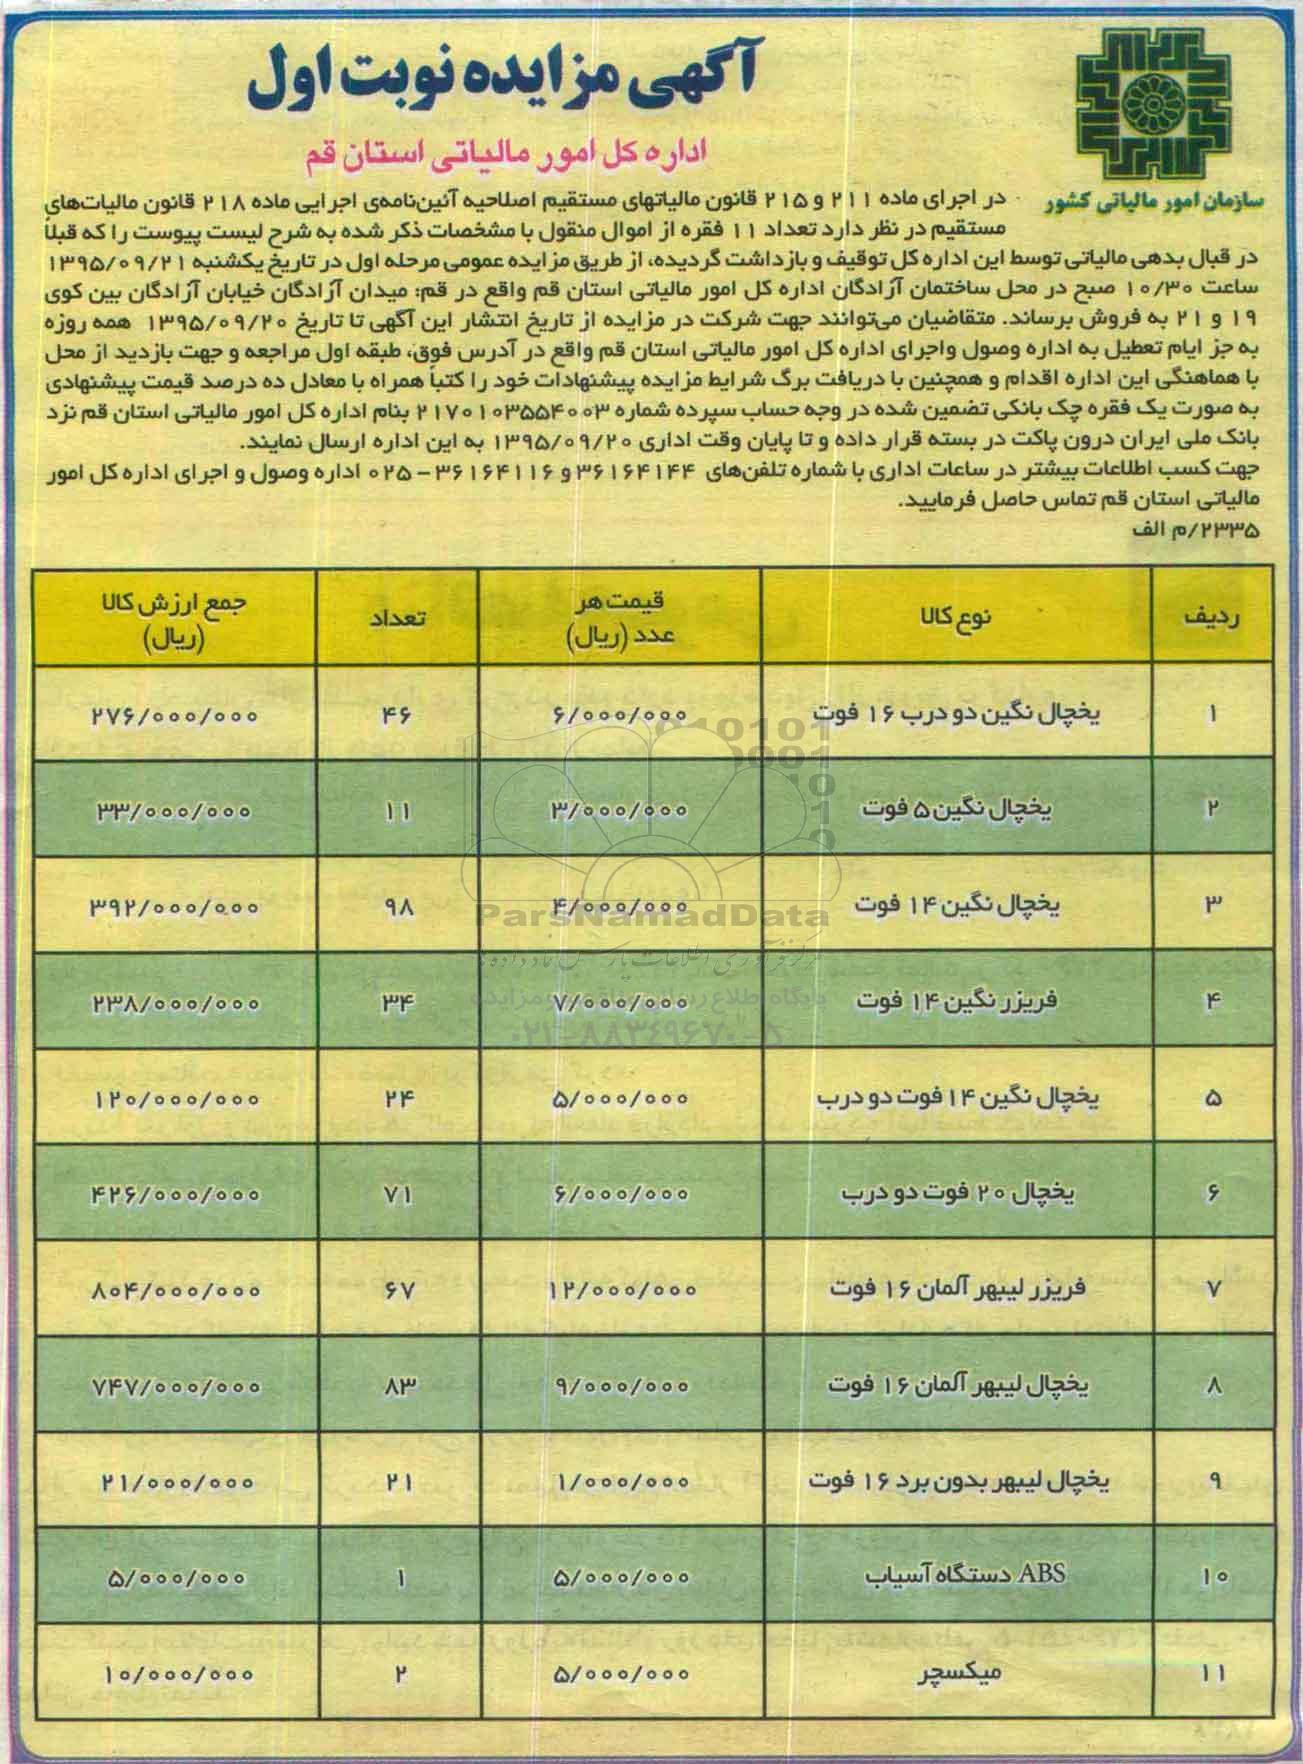 آگهی مزایده نوبت اول
اداره کل امور مالیاتی استان قم
سازمان امور مالیاتی کشور
در اجرای ماده ۲۱۱ و ۲۱۵ قانون مالیاتهای مستقیم اصلاحیه آئین‌نامه‌ی اجرایی ماده ۲۱۸ قانون مالیات‌های
مستقیم در نظر دارد تعداد ۱۱ فقره از اموال منقول با مشخصات ذکر شده به شرح لیست پیوست را که قبلاً
در قبال بدهی مالیاتی توسط این اداره کل توقیف و بازداشت گردیده، از طریق مزایده عمومی مرحله اول در تاریخ یکشنبه ۱۳۹۵/۰۹/۲۱
ساعت ۱۰/۳۰ صبح در محل ساختمان آزادگان اداره کل امور مالیاتی استان قم واقع در قم: میدان آزادگان خیابان آزادگان بین کوی
۱۹ و ۲۱ به فروش برساند. متقاضیان می‌توانند جهت شرکت در مزایده از تاریخ انتشار این آگهی تا تاریخ ۱۳۹۵/۰۹/۲۰ همه روزه
به جز ایام تعطیل به اداره وصول واجرای اداره کل امور مالیاتی استان قم واقع در آدرس فوق، طبقه اول مراجعه و جهت بازدید از محل
با هماهنگی این اداره اقدام و همچنین با دریافت برگ شرایط مزایده پیشنهادات خود را کتباً همراه با معادل ده درصد قیمت پیشنهادی
به صورت یک فقره چک بانکی تضمین شده در وجه حساب سپرده شماره ۲۱۷۰۱۰۳۵۵۴۰۰۳ بنام اداره کل امور مالیاتی استان قم نزد
بانک ملی ایران درون پاکت در بسته قرار داده و تا پایان وقت اداری ۱۳۹۵/۰۹/۲۰ به این اداره ارسال نمایند.
جهت کسب اطلاعات بیشتر در ساعات اداری با شماره تلفن‌های ۳۶۱۶۴۱۴۴ و ۳۶۱۶۴۱۱۶ - ۰۲۵ اداره وصول و اجرای اداره کل امور
مالیاتی استان قم تماس حاصل فرمایید.
۲۳۳۵/م الف
ردیف نوع کالا قیمت هر عدد (ریال) تعداد جمع ارزش کالا (ریال)
۱ یخچال نگین دو درب ۱۶ فوت ۶/۰۰۰/۰۰۰ ۴۶ ۲۷۶/۰۰۰/۰۰۰
۲ یخچال نگین ۵ فوت ۳/۰۰۰/۰۰۰ ۱۱ ۳۳/۰۰۰/۰۰۰
۳ یخچال نگین ۱۴ فوت ۴/۰۰۰/۰۰۰ ۹۸ ۳۹۲/۰۰۰/۰۰۰
۴ فریزر نگین ۱۴ فوت ۷/۰۰۰/۰۰۰ ۳۴ ۲۳۸/۰۰۰/۰۰۰
۵ یخچال نگین ۱۴ فوت دو درب ۵/۰۰۰/۰۰۰ ۲۴ ۱۲۰/۰۰۰/۰۰۰
۶ یخچال ۲۰ فوت دو درب ۶/۰۰۰/۰۰۰ ۷۱ ۴۲۶/۰۰۰/۰۰۰
۷ فریزر لیبهر آلمان ۱۶ فوت ۱۲/۰۰۰/۰۰۰ ۶۷ ۸۰۴/۰۰۰/۰۰۰
۸ یخچال لیبهر آلمان ۱۶ فوت ۹/۰۰۰/۰۰۰ ۸۳ ۷۴۷/۰۰۰/۰۰۰
۹ یخچال لیبهر بدون برد ۱۶ فوت ۱/۰۰۰/۰۰۰ ۲۱ ۲۱/۰۰۰/۰۰۰
۱۰ ABS دستگاه آسیاب ۵/۰۰۰/۰۰۰ ۱ ۵/۰۰۰/۰۰۰
۱۱ میکسچر ۵/۰۰۰/۰۰۰ ۲ ۱۰/۰۰۰/۰۰۰
ParsNamadData
۰۲۱-۸۸۳۴۹۶۷۰-۵